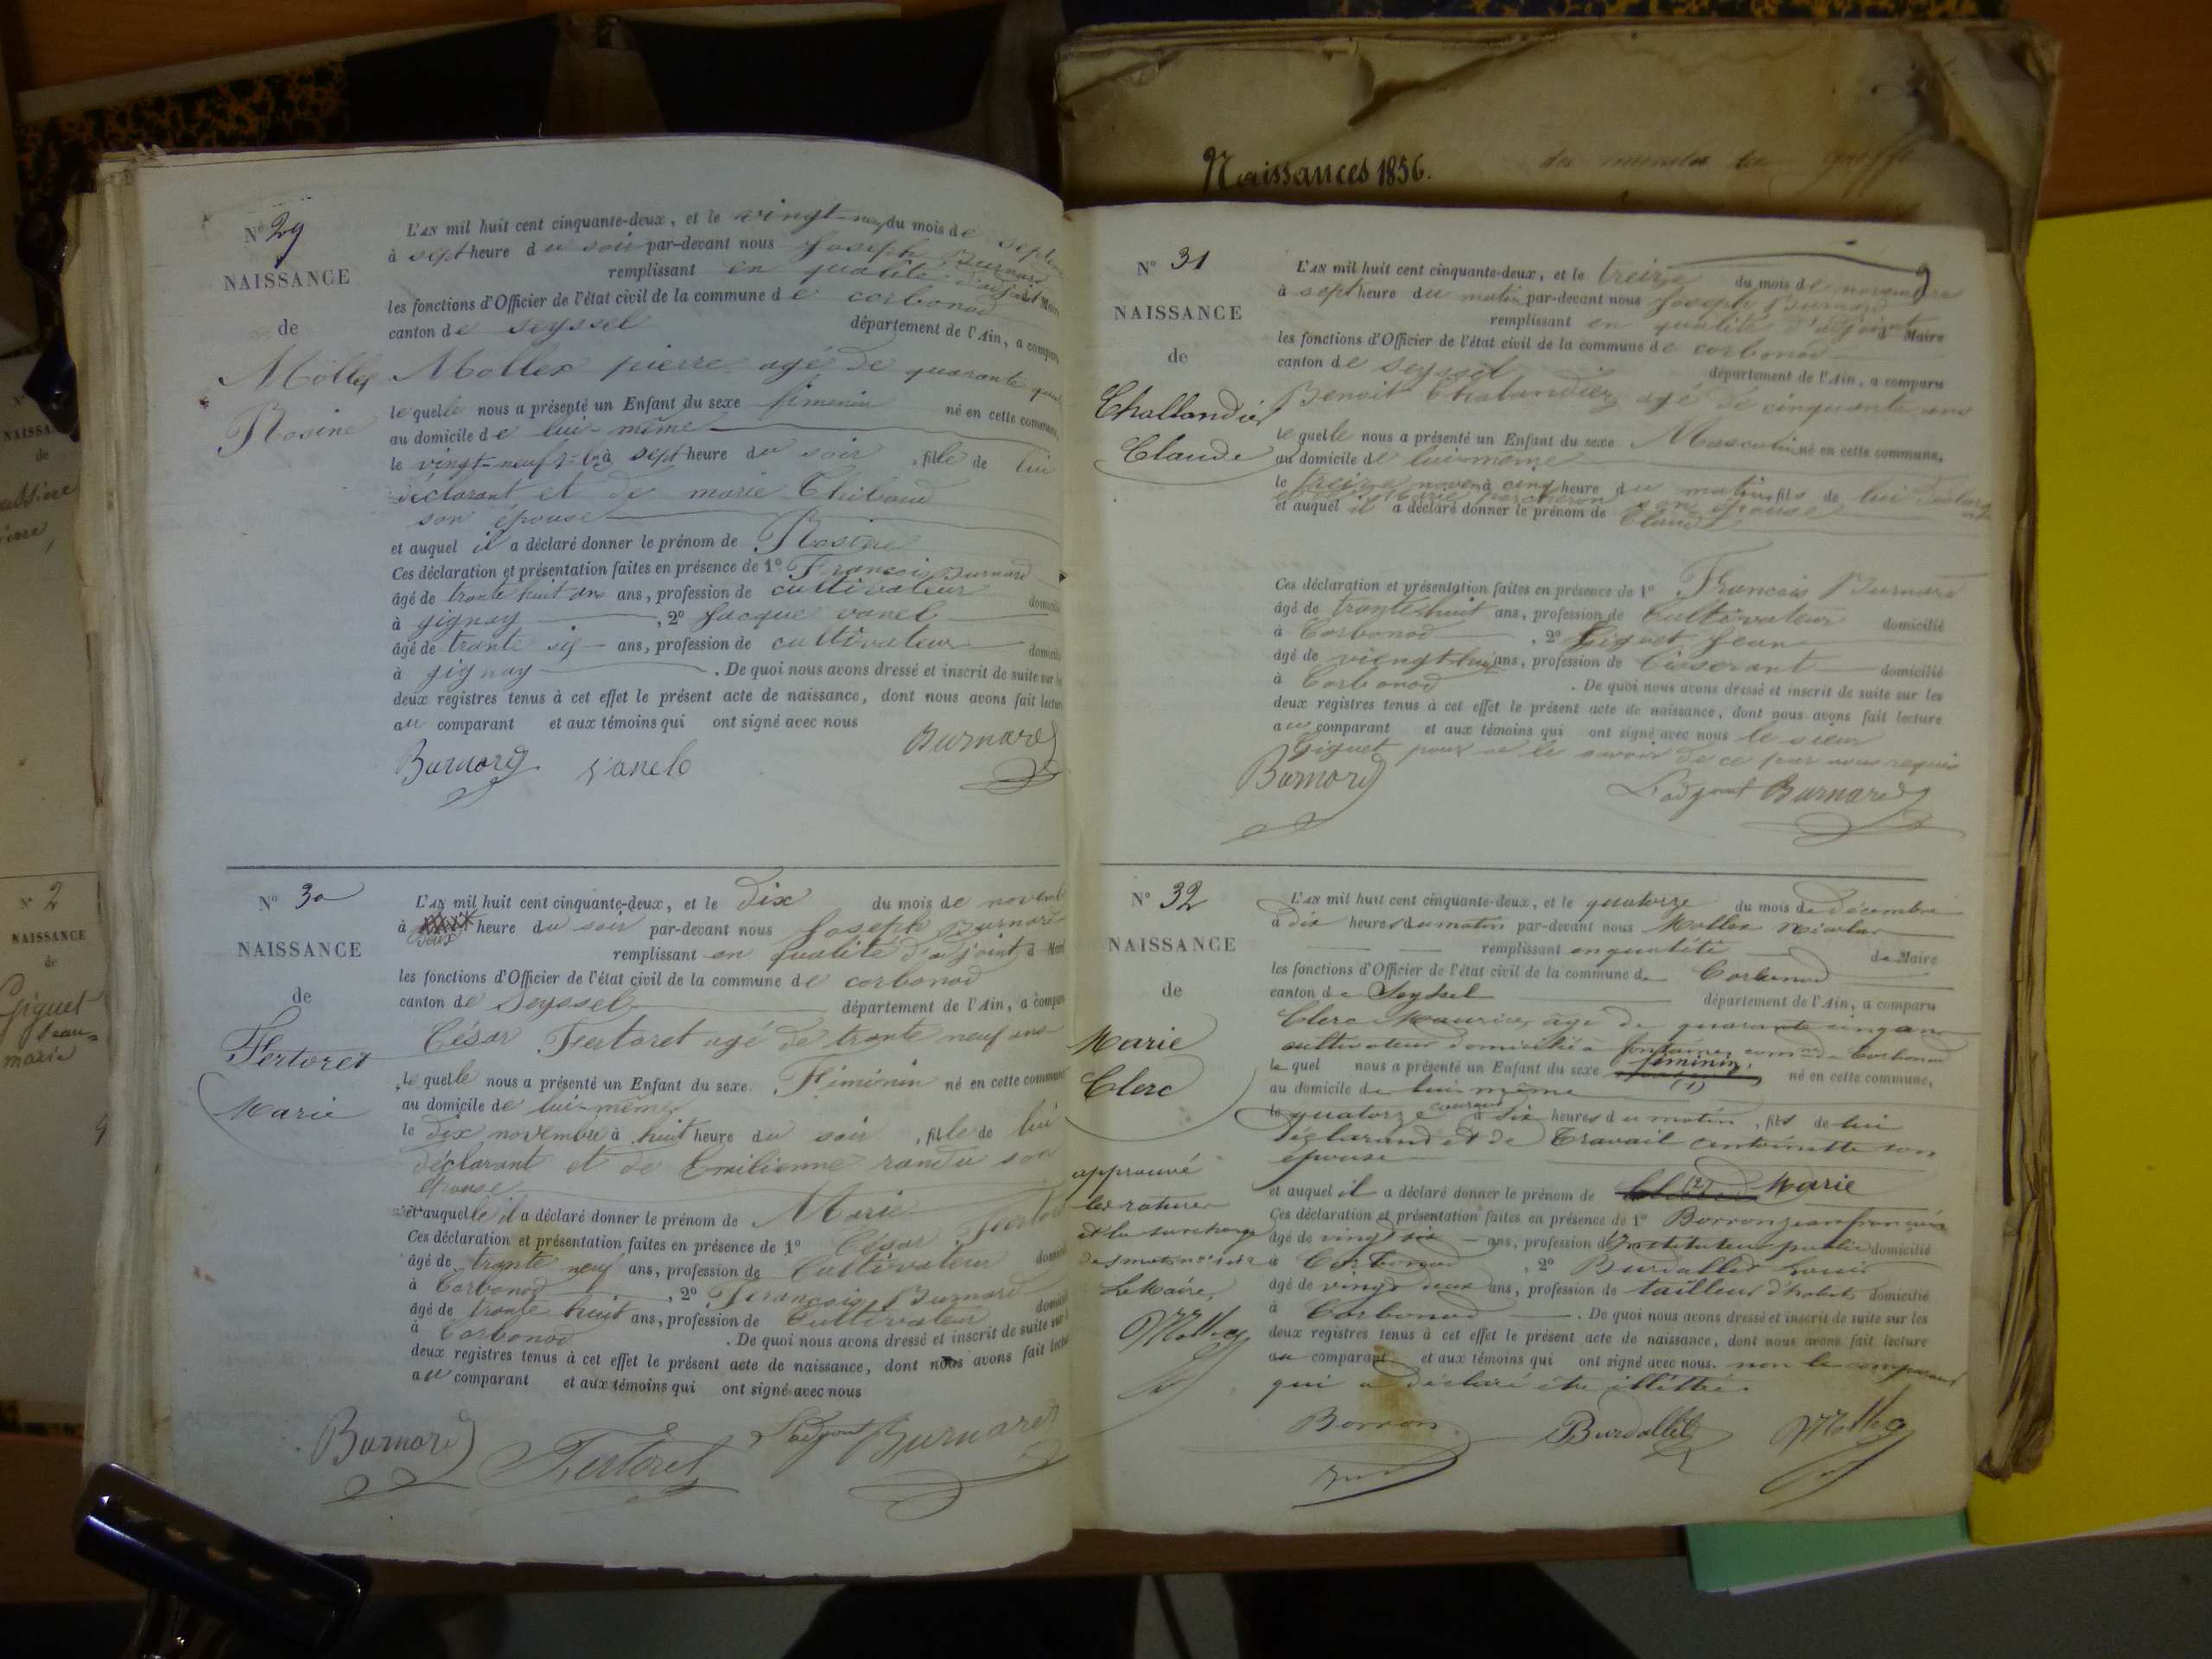 Naissances 1856.
N° 29
NAISSANCE
de
Mollex
Rosine
L'AN mil huit cent cinquante-deux, et le vingt-neuf du mois de septem
à sept heure du soir par-devant nous Joseph Burnard
remplissant en qualité d'adjoint Maire
les fonctions d'Officier de l'état civil de la commune de corbonod
canton de seyssel département de l'Ain, a comparu
Mollex pierre agé de quarante
le quelle nous a présenté un Enfant du sexe féminin né en cette commune,
au domicile de lui-même
le vingt-neuf à sept heure du soir, fille de lui
déclarant et de marie Thibaud
son épouse
et auquel il a déclaré donner le prénom de Rosine
Ces déclaration et présentation faites en présence de 1° François Burnard
âgé de trante huit ans ans, profession de cultivateur domicilié
à gignay, 2° Jacque vanel
âgé de trante sis ans, profession de cultivateur domicilié
à gignay. De quoi nous avons dressé et inscrit de suite sur les
deux registres tenus à cet effet le présent acte de naissance, dont nous avons fait lecture
au comparant et aux témoins qui ont signé avec nous
Burnard vanel Burnard
N° 30
NAISSANCE
de
Fertoret
Marie
L'AN mil huit cent cinquante-deux, et le Dix du mois de novemb
à heure du soir par-devant nous Joseph Burnard
remplissant en qualité d'adjoint d Maire
les fonctions d'Officier de l'état civil de la commune de corbonod
canton de Seyssel département de l'Ain, a comparu
César Fertoret agé de trante neuf ans
le quelle nous a présenté un Enfant du sexe Féminin né en cette commune
au domicile de lui-même
le dix novembre à huit heure du soir, fille de lui
déclarant et de Emilienne randu son
épouse
et auquelle il a déclaré donner le prénom de Marie
Ces déclaration et présentation faites en présence de 1° César Fertoret
âgé de trante neuf ans, profession de Cultivateur domicilié
à Corbonod, 2° François Burnard
âgé de trante huit ans, profession de Cultivateur domicilié
à Corbonod. De quoi nous avons dressé et inscrit de suite sur
deux registres tenus à cet effet le présent acte de naissance, dont nous avons fait lecture
au comparant et aux témoins qui ont signé avec nous
Burnard Fertoret L'adjoint Burnard
N° 31
NAISSANCE
de
Challandier
Claude
L'AN mil huit cent cinquante-deux, et le treize du mois de novembre
à sept heure du matin par-devant nous Joseph Burnard
remplissant en qualité d'adjoint d Maire
les fonctions d'Officier de l'état civil de la commune de corbonod
canton de seyssel département de l'Ain, a comparu
Benoit Chalandiez agé de cinquante ans
le quelle nous a présenté un Enfant du sexe Masculin né en cette commune,
au domicile de lui-même
le treize novem à cinq heure du matin, fils de lui déclarant
et de Marie son épouse
et auquel il a déclaré donner le prénom de Claude
Ces déclaration et présentation faites en présence de 1° François Burnard
âgé de trante huit ans, profession de Cultivateur domicilié
à Corbonod, 2° Giguet Jean
âgé de viengt huit ans, profession de tisserant domicilié
à Corbonod. De quoi nous avons dressé et inscrit de suite sur les
deux registres tenus à cet effet le présent acte de naissance, dont nous avons fait lecture
au comparant et aux témoins qui ont signé avec nous le sieur
Giguet pour ne le savoir de ce par nous requis
Burnard L'adjoint Burnard
N° 32
NAISSANCE
de
Marie
Clerc
approuvé
les ratures
et la surcharge
des mots n° 1 et 2
Le Maire,
Mollex
L'AN mil huit cent cinquante-deux, et le quatorze du mois de décembre
à dix heures du matin par-devant nous Mollex Nicolas
remplissant en qualité de Maire
les fonctions d'Officier de l'état civil de la commune de Corbonod
canton de Seyssel département de l'Ain, a comparu
Clerc Maurice, âgé de quarante cinq ans
cultivateur domicilié à fontaines comne de Corbonod
le quel nous a présenté un Enfant du sexe féminin, (1) né en cette commune,
au domicile de lui-même
le quatorze courant à six heures du matin, fils de lui
déclarand et de Travail antoinette son
épouse
et auquel il a déclaré donner le prénom de (2) Marie
Ces déclaration et présentation faites en présence de 1° Borron jean françois
âgé de vingt six ans, profession d'instituteur public domicilié
à Corbonod, 2° Burdallet Louis
âgé de vingt deux ans, profession de tailleur d'habits domicilié
à Corbonod. De quoi nous avons dressé et inscrit de suite sur les
deux registres tenus à cet effet le présent acte de naissance, dont nous avons fait lecture
au comparant et aux témoins qui ont signé avec nous. non le comparant
qui a déclaré être illétré.
Borron Burdallet Mollex
N° 2
NAISSANCE
de
Giguet
Jean=
marie